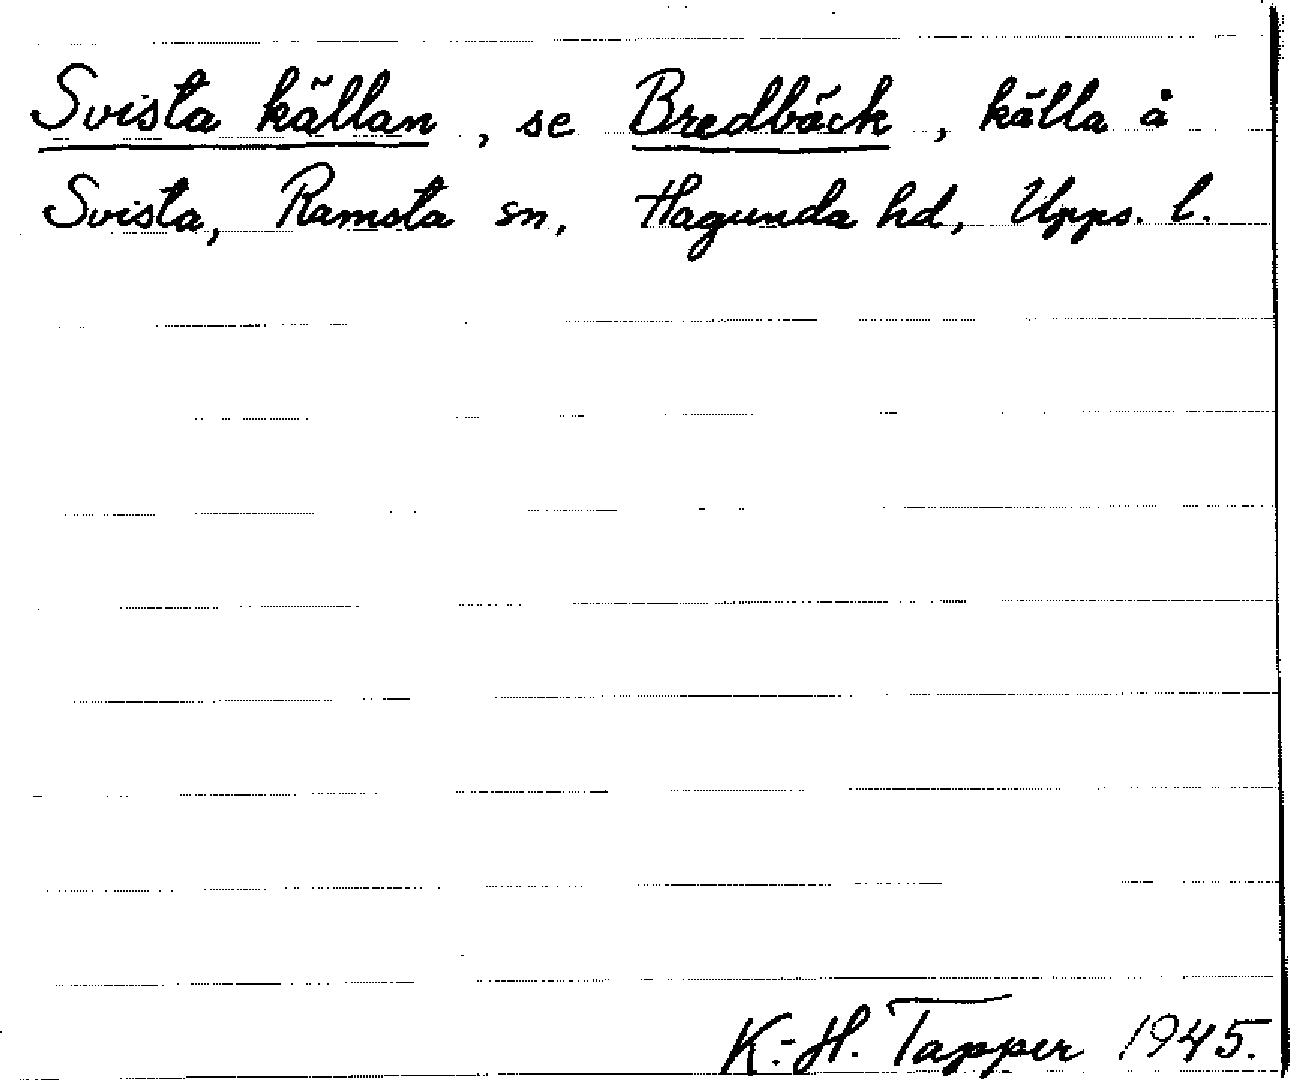 Svista källan, se Bredbäck, källa å
Svista, Ramsta sn, Hagunda hd, Upps. l.
K.-H. Tapper 1945.